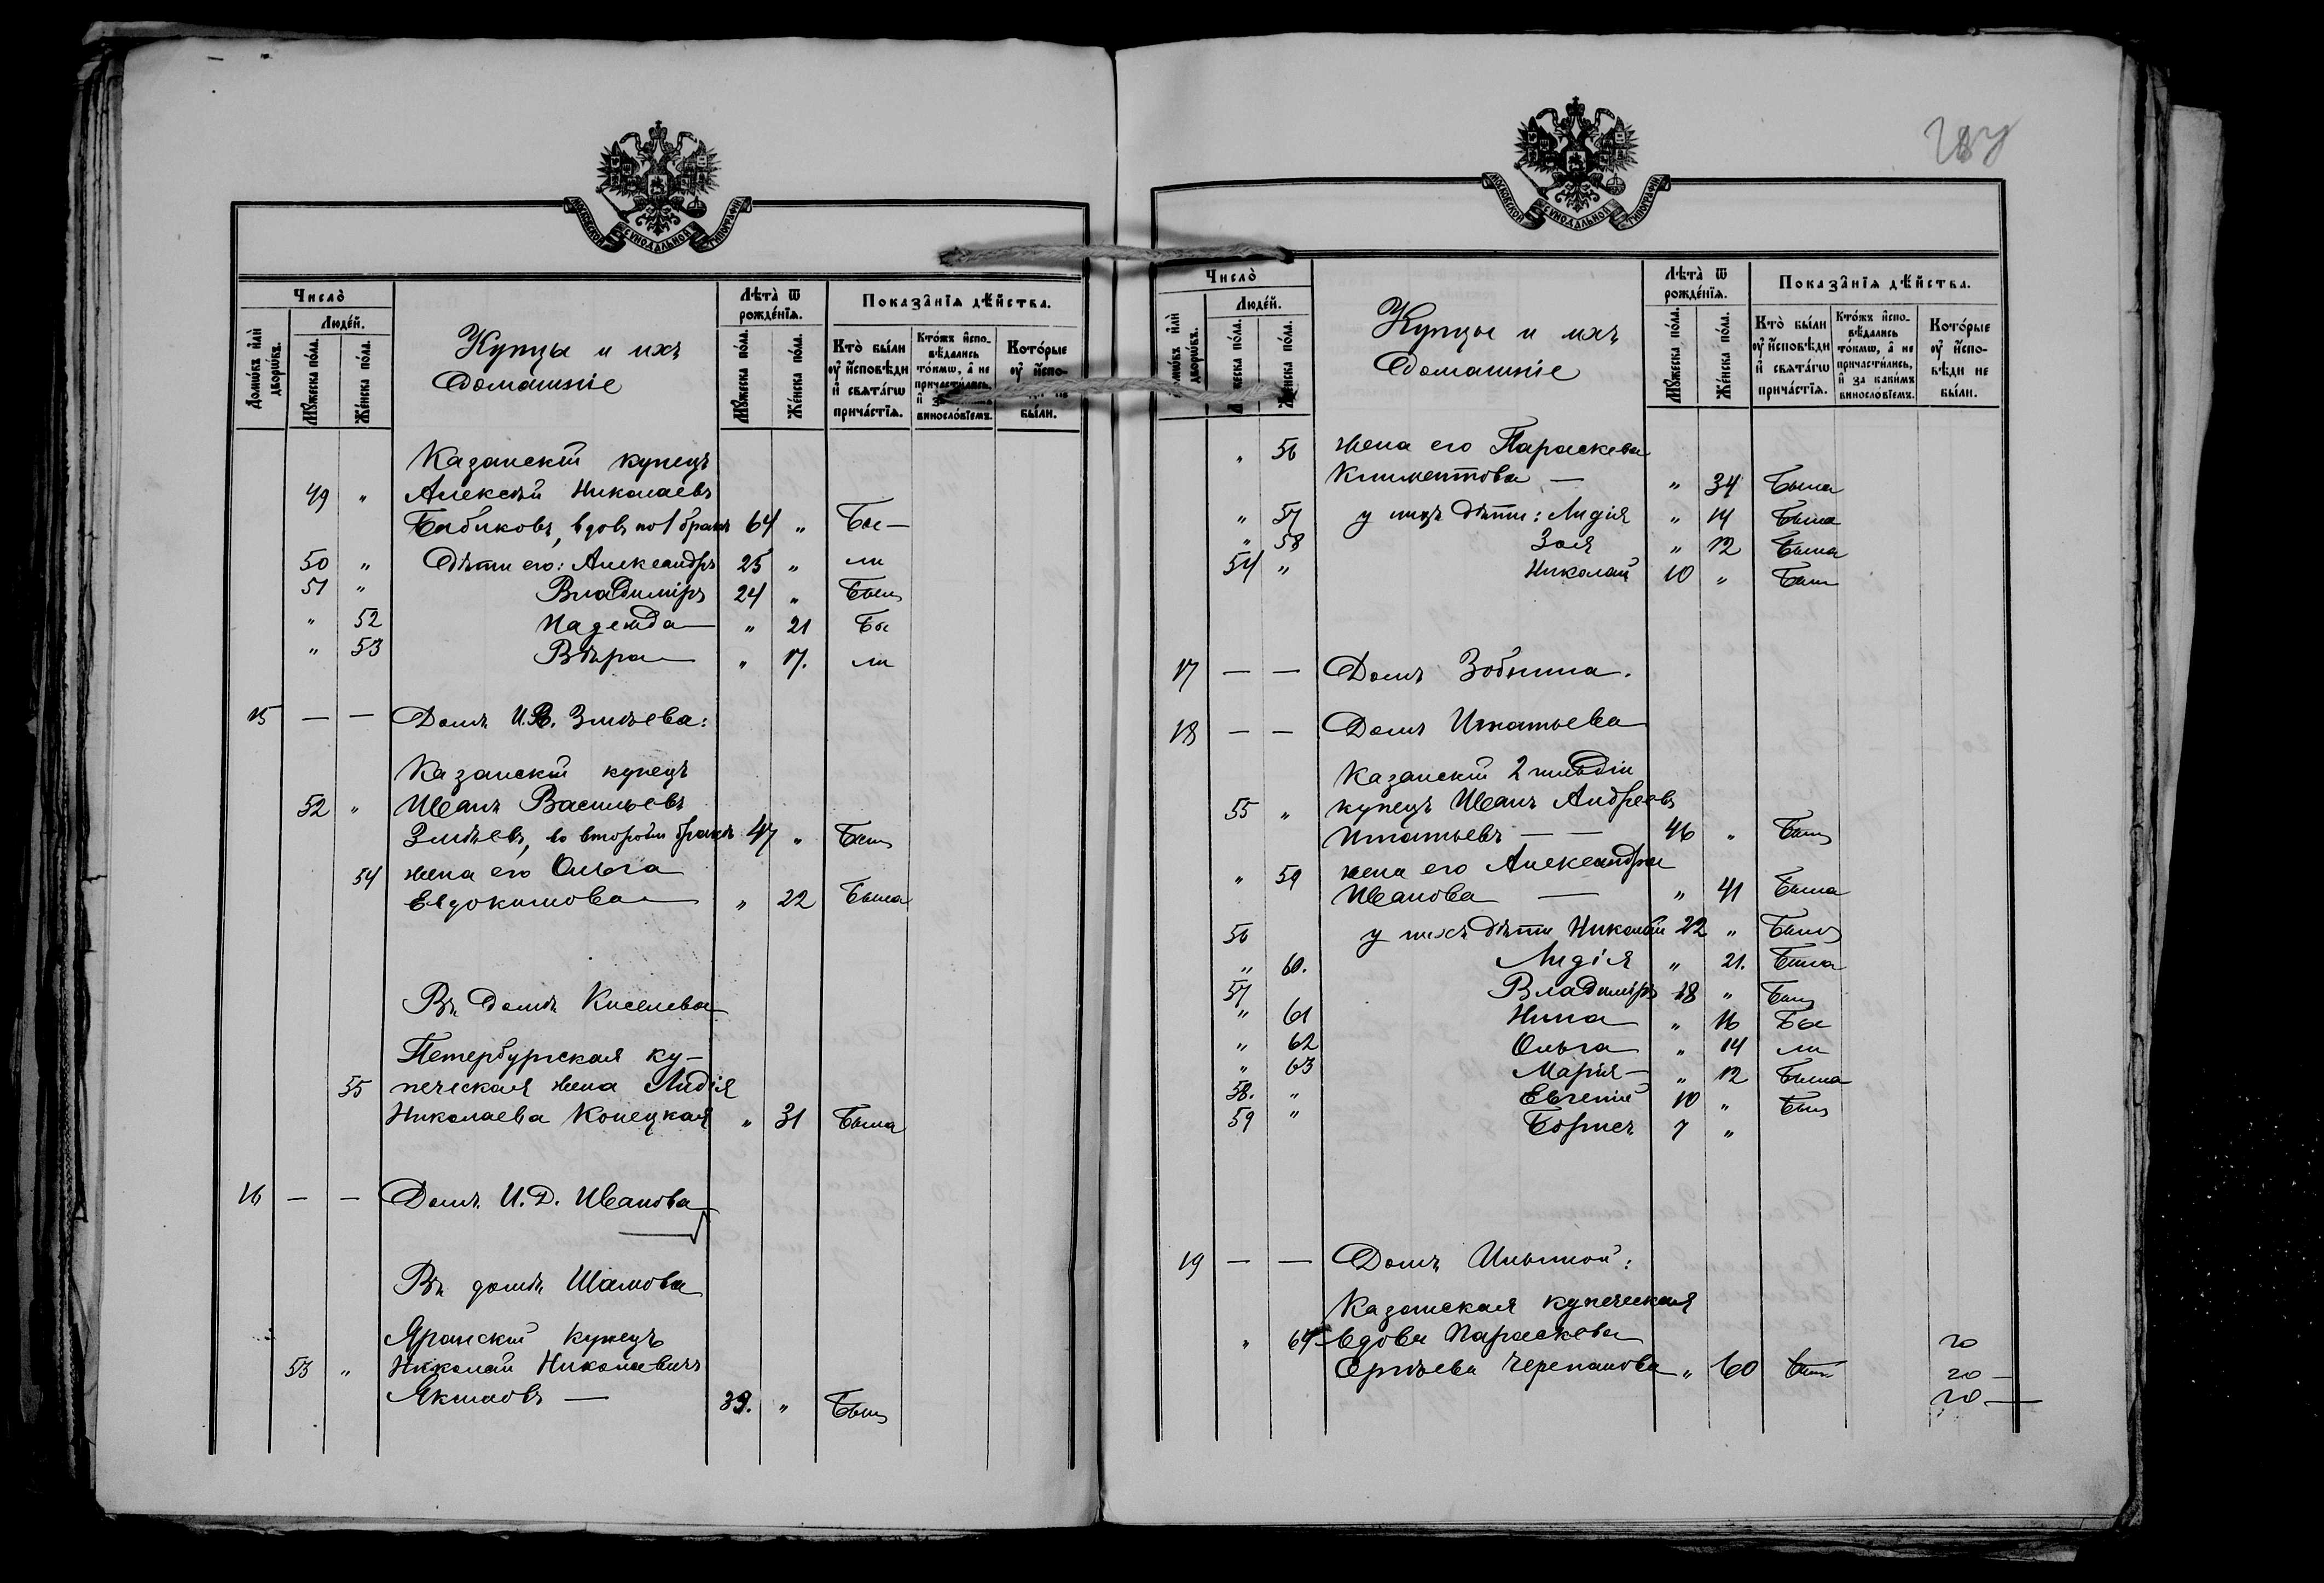 МОСКОВСКОЙ СѴНОДАЛЬНОЙ ТИПОГРАФІИ
Число̀
Домѡ́въ и҆лѝ дворѡ́въ.
Люде́й.
Мꙋ́жеска по́ла.
Же́нска по́ла.
Купцы и ихъ
Домашніе
Лѣта̀ ѿ рожде́нїѧ.
Мꙋ́жеска по́ла.
Же́нска по́ла.
Показа̑нїѧ дѣ́йства.
Кто̀ бы́ли оу҆ и҆сповѣди и҆ свѧта́гѡ прича́стїѧ.
Кто́жъ и҆спо-вѣдались то́кмѡ, а҆ не причасти́лись, и҆ за
винослові́емъ.
Кото́рые оу҆ и҆спо-
бы́ли.
Казанскій купецъ
49 " Алексѣй Николаевъ
Бабиковъ, вдовъ по 1 бракѣ 64 " Бы-
50 " Дѣти его: Александръ 25 " ли
51 " Владиміръ 24 " Былъ
" 52 Надежда " 21 Бы
" 53 Вѣра " 17. ли
15 — — Домъ И.В. Змѣева:
Казанскій купецъ
52 " Иванъ Васильевъ
Змѣевъ, во второмъ бракѣ 47 " Былъ
54 жена его Ольга
Евдокимова " 22 Была
Въ домѣ Киселева
Петербургская ку-
55 печеская жена Лидія
Николаева Конецкая " 31 Была
16 — — Домъ И.Д. Иванова
Въ домѣ Шамова
Яранскій купецъ
53 " Николай Николаевичъ
39. " Былъ
МОСКОВСКОЙ СѴНОДАЛЬНОЙ ТИПОГРАФІИ
Число̀
Домѡ́въ и҆лѝ дворѡ́въ.
Люде́й.
Мꙋ́жеска по́ла.
Же́нска по́ла.
Купцы и ихъ
Домашніе
Лѣта̀ ѿ рожде́нїѧ.
Мꙋ́жеска по́ла.
Же́нска по́ла.
Показа̑нїѧ дѣ́йства.
Кто̀ бы́ли оу҆ и҆сповѣди и҆ свѧта́гѡ прича́стїѧ.
Кто́жъ и҆спо-вѣдались то́кмѡ, а҆ не причасти́лись, и҆ за каки́мъ винослові́емъ.
Кото́рые оу҆ и҆спо-вѣди не бы́ли.
" 56 жена его Параскева
Климентова — " 34 Была
" 57 у нихъ дѣти: Лидія " 14 Была
" 58 Зоя " 12 Была
54 " Николай 10 " Былъ
17 — — Домъ Зобнина.
18 — — Домъ Игнатьева
Казанскій 2 гильдіи
55 " купецъ Иванъ Андреевъ
Игнатьевъ — — 46 " Былъ
" 59 жена его Александра
Иванова — " 41 Была
56 у нихъ дѣти Николай 22 " Былъ
" 60. Лидія " 21. Была
57 Владиміръ 18 " Былъ
" 61 Нина " 16 Бы
" 62 Ольга " 14 ли
" 63 Марія — " 12 Была
58. " Евгеній 10 " Былъ
59 " Борисъ 7 "
19 — — Домъ Ильиной:
Казанская купеческая
" 64 вдова Параскева
Сергѣева Черепанова " 60
20
20 —
20 —